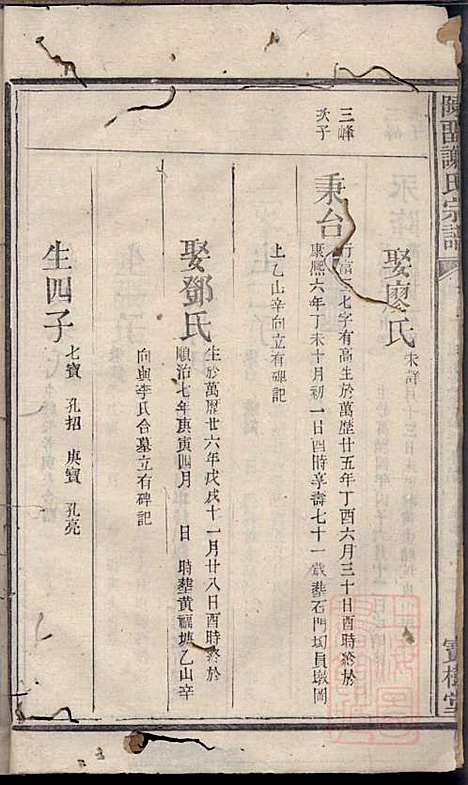 陳留謝氏宗譜
寶樹堂
娶廖氏
三峰
次子
秉台
行富三七字有高生於萬歷廿五年丁酉六月三十日酉時終於
康熙六年丁未十月初一日酉時享壽七十一歲塟石門㘭員墩岡
上乙山辛向立有碑記
娶鄧氏
生於萬歷廿六年戊戌十一月廿八日酉時終於
順治七年庚寅四月 日 時塟黃福塘乙山辛
向與李氏合墓立有碑記
生四子
七寶 孔招 庚寶 孔亮